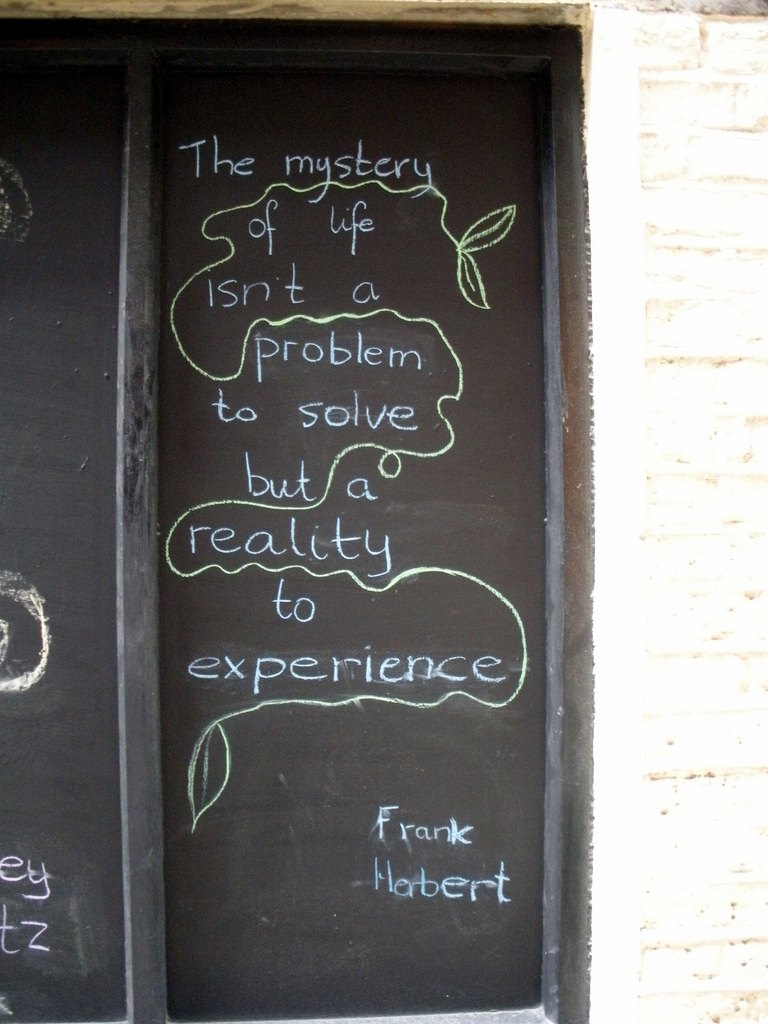 The mystery
of life
isn't a
problem
to solve
but a
reality
to
experience
Frank
Habert
ey
tz